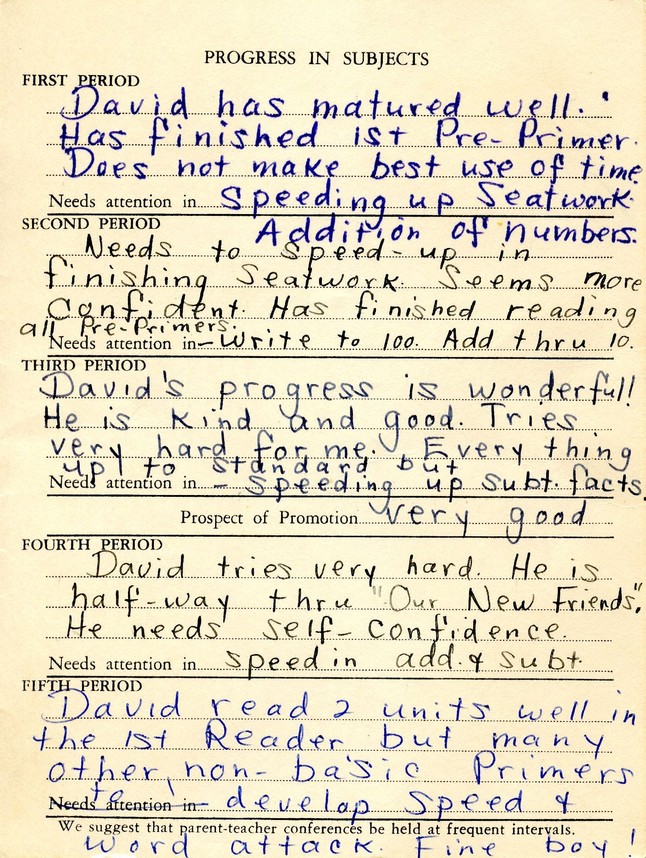 PROGRESS IN SUBJECTS
FIRST PERIOD
David has matured well.
Has finished 1st Pre-Primer.
Does not make best use of time
Needs attention in speeding up Seatwork.
Addition of numbers.
SECOND PERIOD
Needs to speed-up in
finishing Seatwork. Seems more
Confident. Has finished reading
all Pre-Primers.
Needs attention in - Write to 100. Add thru 10.
THIRD PERIOD
David's progress is wonderful!
He is kind and good. Tries
very hard for me. Every thing
up to standard but
Needs attention in - Speeding up subt. facts.
Prospect of Promotion very good
FOURTH PERIOD
David tries very hard. He is
half-way thru "Our New Friends".
He needs self-confidence.
Needs attention in speed in add. & subt.
FIFTH PERIOD
David read 2 units well in
the 1st Reader but many
other non-basic Primers
Needs attention in - develop speed &
We suggest that parent-teacher conferences be held at frequent intervals.
word attack. Fine boy!